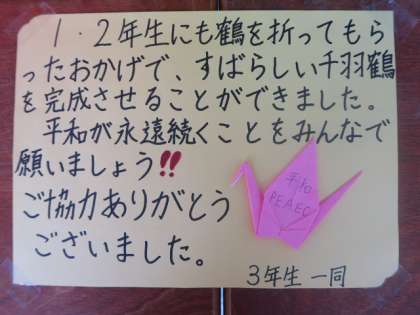 1・2年生にも鶴を折ってもら
ったおかげで、すばらしい千羽鶴
を完成させることができました。
平和が永遠続くことをみんなで
願いましょう!!
ご協力ありがとう
ございました。
平和
PEAEC
3年生 一同